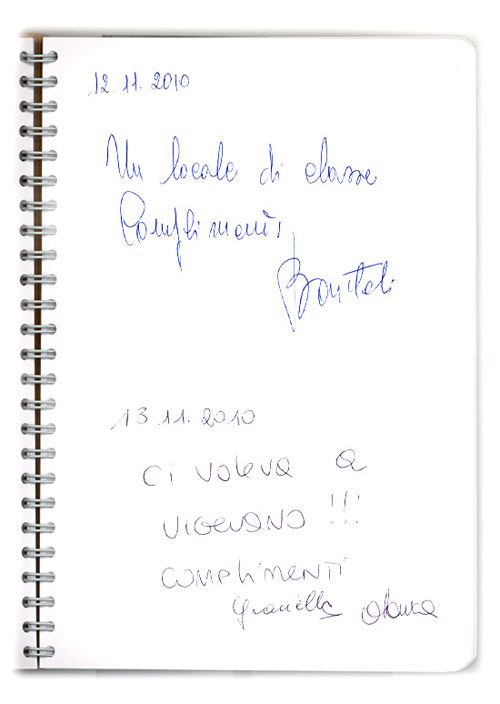 12.11.2010
Un locale di classe
Complimenti
13.11.2010
Ci voleva a
VIGEVANO !!!
COMPLIMENTI